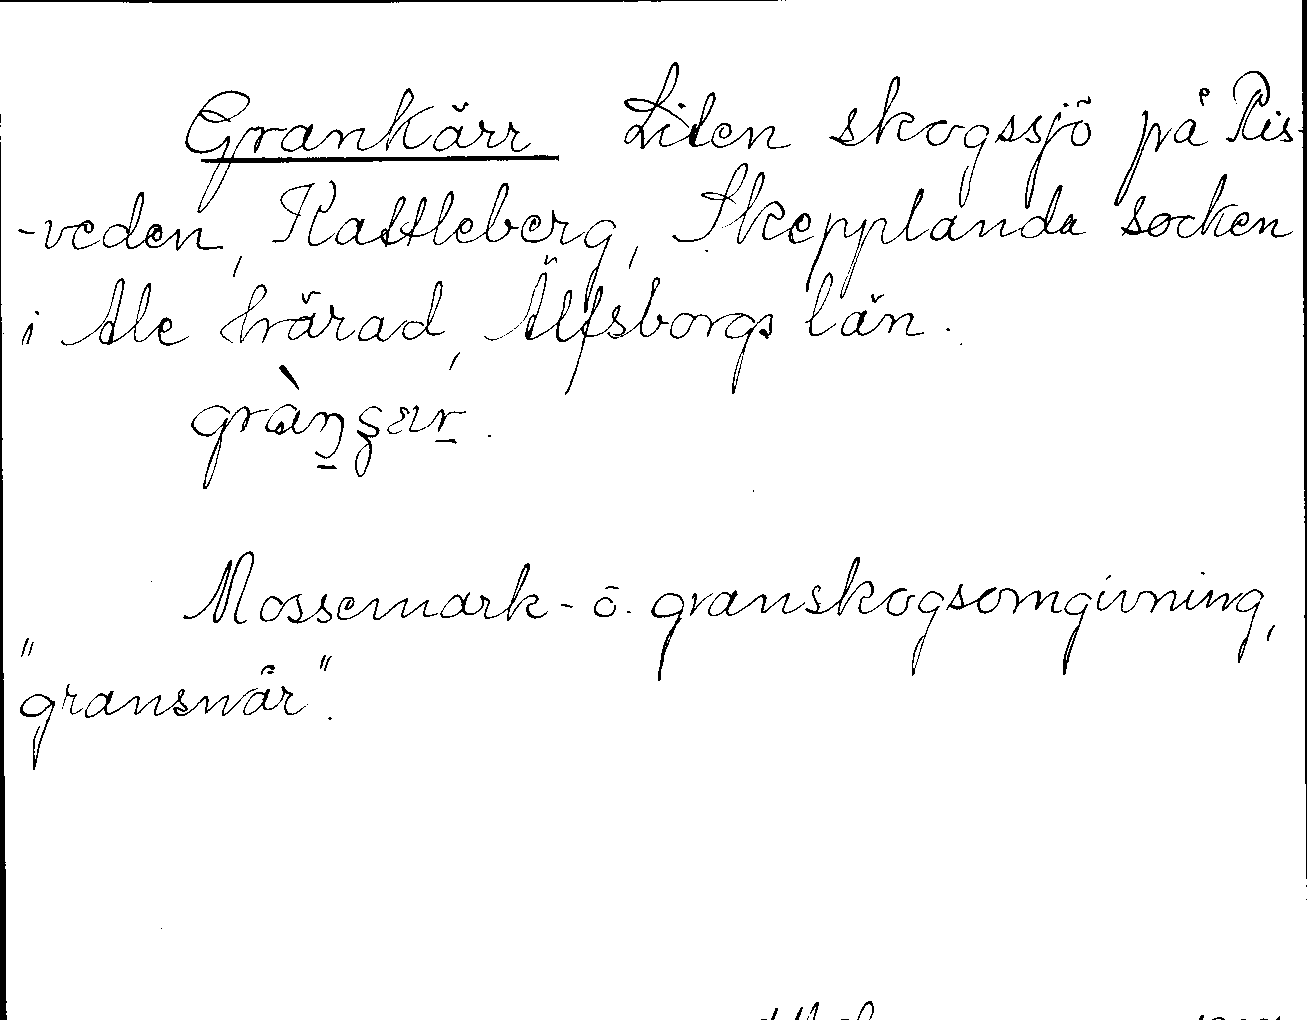 Grankärr Liten skogssjö på Ris-
-veden, Kattleberg, Skepplanda socken
i Ale härad, Älfsborgs län.
Mossemark- o. granskogsomgivning,
"gransnår".